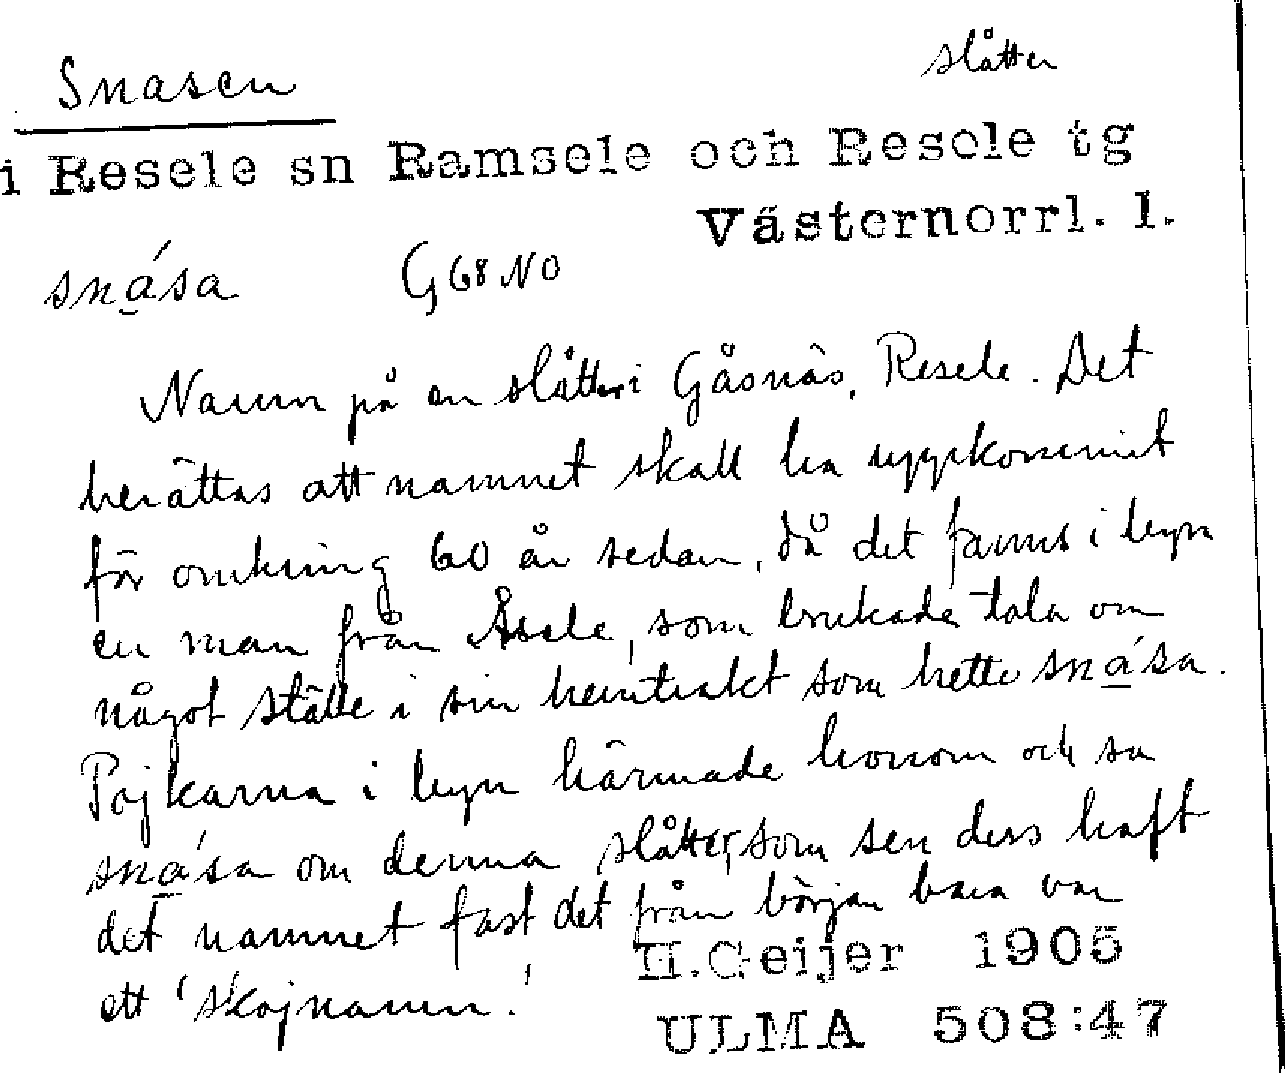 Snasen slåtter
i Resele sn Ramsele och Resele tg
Västernorrl. l.
sna̱´sa G 68 NO
Namn på en slåtter i Gåsnäs, Resele. Det
berättas att namnet skall ha uppkommit
för omkring 60 år sedan, då det fanns i byn
en man från Åsele, som brukade tala om
något ställe i sin hemtrakt som hette sna̱´sa.
Pojkarna i byn härmade honom och sa
sna̱´sa om denna slåtter, som sen dess haft
det namnet fast det från början bara var
ett 'skojnamn.'
H.Geijer 1905
ULMA 508:47